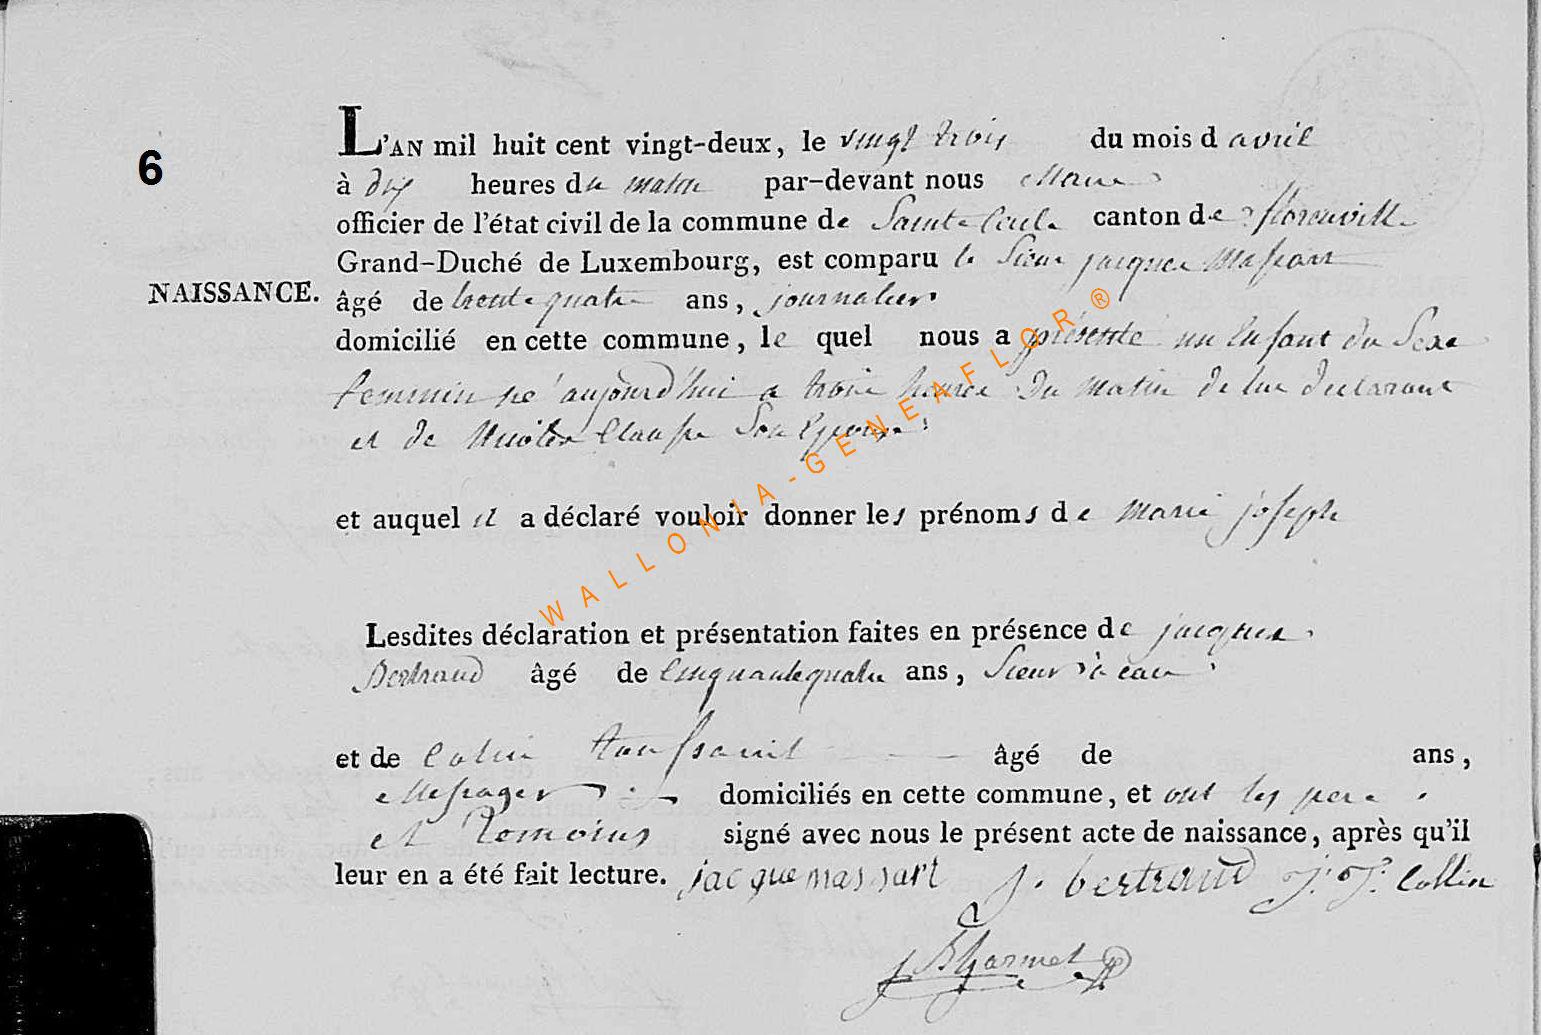 6
L'AN mil huit cent vingt-deux, le vingt trois du mois d avril
à dix heures du matin par-devant nous Maire
officier de l'état civil de la commune de Sainte Cecile canton de florenville
Grand-Duché de Luxembourg, est comparu le Sieur jacques Massart
NAISSANCE.
âgé de trente quatre ans, journalier
domicilié en cette commune, le quel nous a présenté un Enfant du Sexe
feminin né aujourd'hui a trois heures du matin de lui declarant
et de Clausse Son Epouse
et auquel il a déclaré vouloir donner les prénoms de marie joseph
Lesdites déclaration et présentation faites en présence de jacques
Bertrand âgé de Cinquante quatre ans,
et de Colin toussaint âgé de ans,
Messager domiciliés en cette commune, et ont les pere
et temoins signé avec nous le présent acte de naissance, après qu'il
leur en a été fait lecture. jacque massart J. bertrand J. T. Collin
WALLONIA-GENEAFLOR®